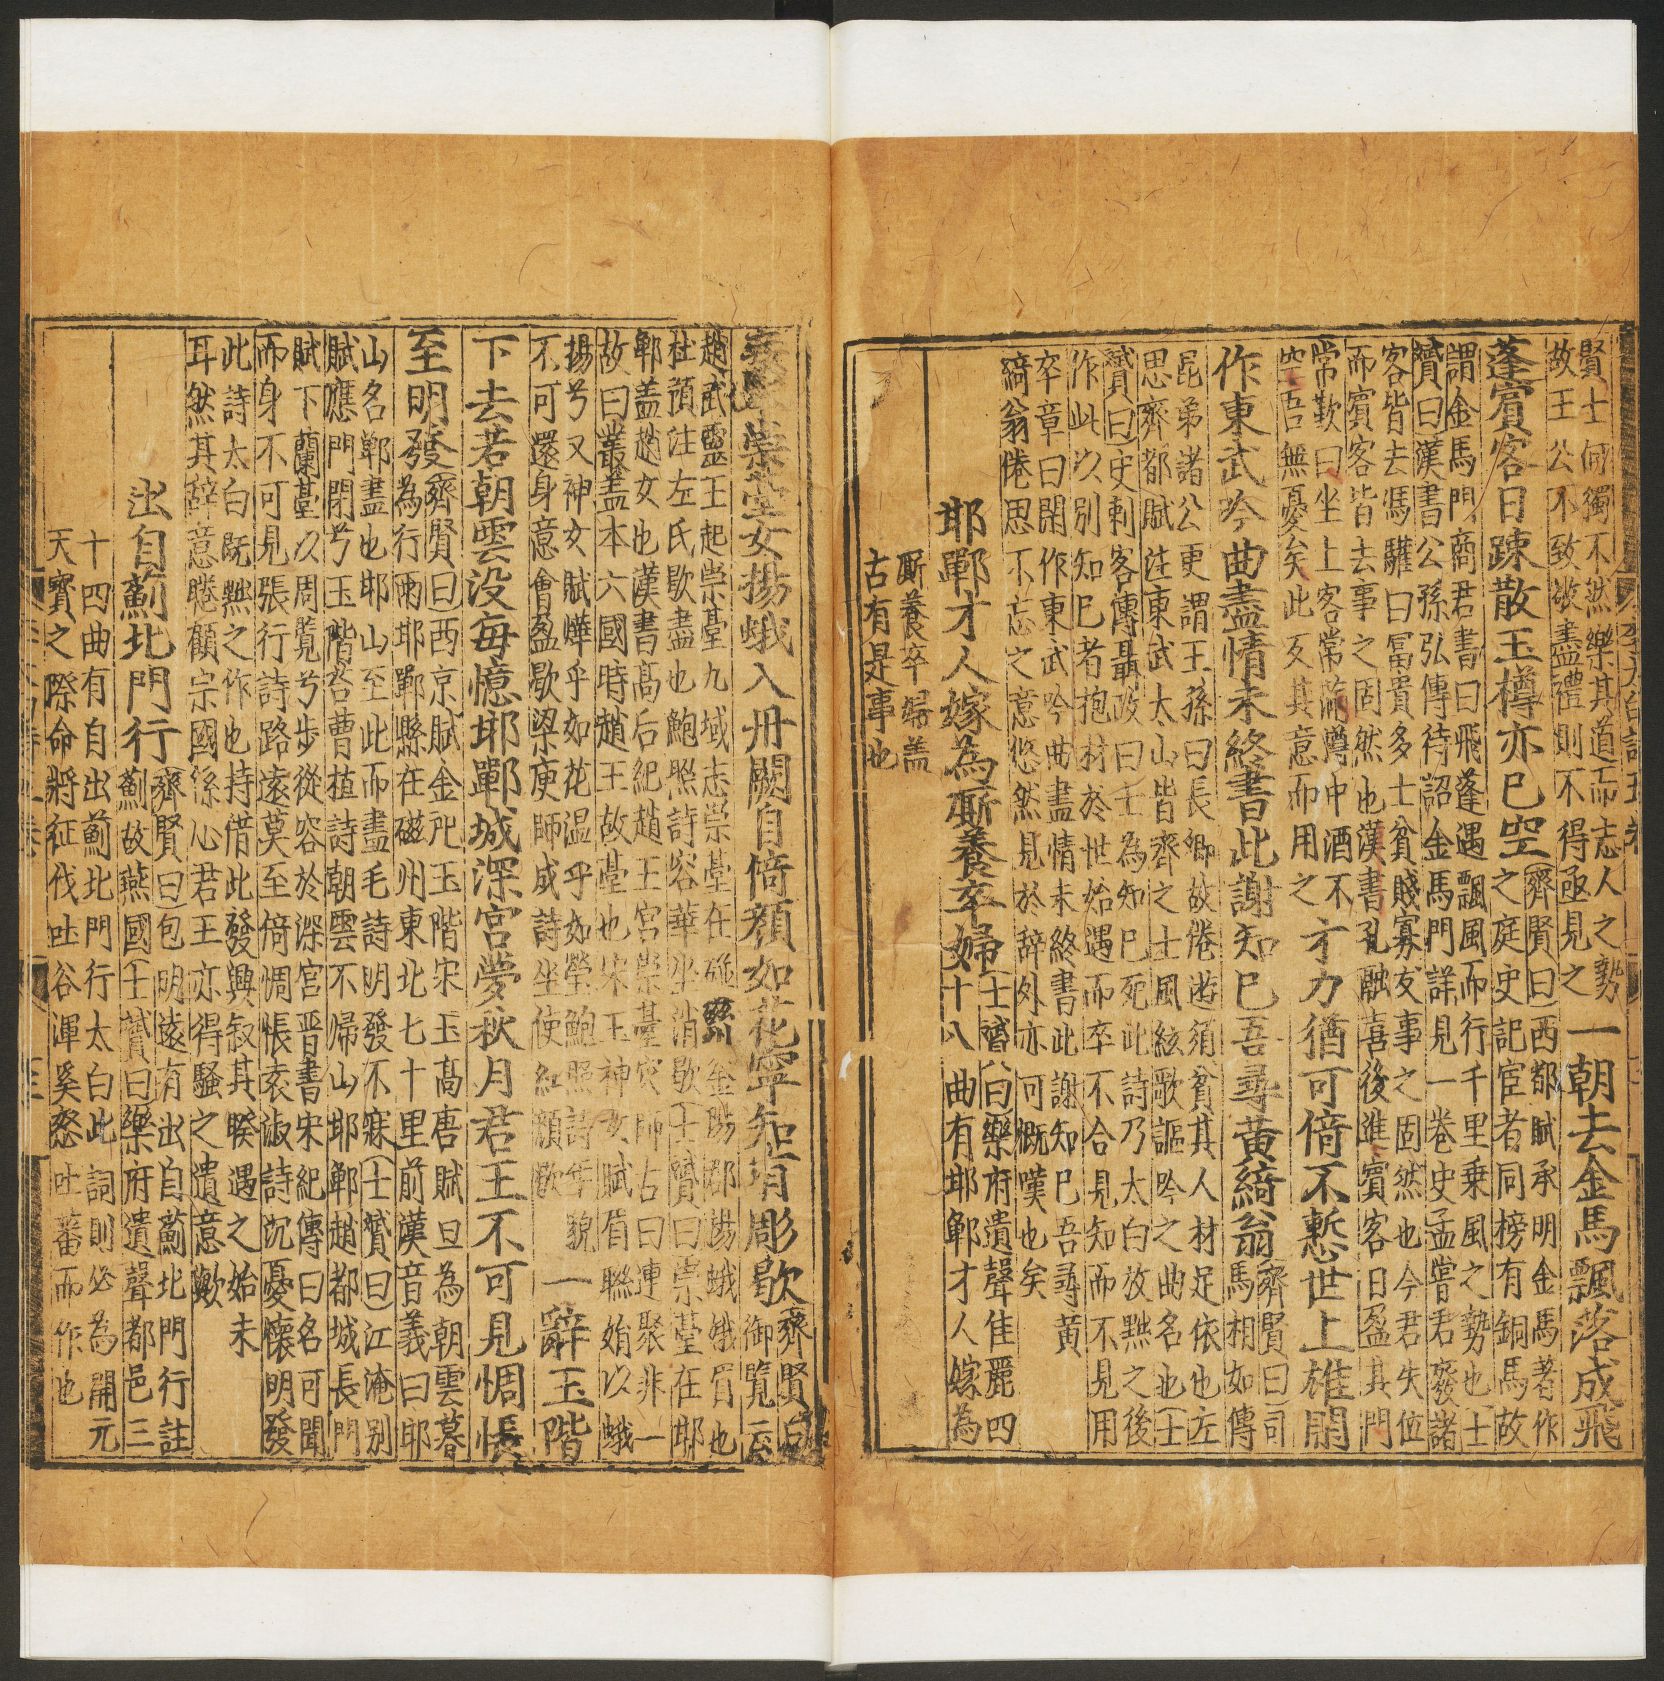 賢士何獨不然樂其道而志人之勢
故王公不致敬盡禮則不得亟見之
一朝去金馬飄落成飛
蓬賓客日踈散玉樽亦已空
齊賢曰西都賦承明金馬著作
之庭史記宦者同榜有銅馬故
謂金馬門商君書曰飛蓬遇飄風而行千里乗風之勢也士
贇曰漢書公孫弘傳待詔金馬門詳見一卷史孟嘗君發諸
客皆去馮驩曰冨貴多士貧賤寡友事之固然也今君失位
而賓客皆去事之固然也漢書孔融喜後進賓客日盈其門
常歎曰坐上客常滿罇中酒不
空吾無憂矣此反其意而用之
才力猶可倚不慙世上雄閒
作東武吟曲盡情未終書此謝知已吾尋黃綺翁
齊賢曰司
馬相如傳
昆弟諸公更謂王孫曰長卿故倦逰須貧其人材足依也左
思齊都賦注東武太山皆齊之土風絃歌謳吟之曲名也士
贇曰史刺客傳聶政曰士為知已死此詩乃太白放黜之後
作此以别知已者抱材於世始遇而卒不合見知而不見用
卒章曰閑作東武吟曲盡情未終書此謝知已吾尋黃
綺翁倦思不忘之意悠然見於辞外亦可慨嘆也矣
邯鄲才人嫁為厮養卒婦
士贇曰樂府遺聲佳麗四
十八曲有邯鄲才人嫁為
厮養卒婦盖
古有是事也
叢臺女揚蛾入丹闕自倚顔如花寧知有彫歇
齊賢曰
御覽云
趙武靈王起崇臺九域志崇臺在磁州金陽郡揚蛾娥眉也
杜預注左氏歇盡也鮑照詩容華坐消歇士贇曰崇臺在邯
鄲盖趙女也漢書髙后紀趙王宮崇臺灾師古曰連聚非一
故曰叢盖本六國時趙王故臺也宋玉神女賦眉聯娟以蛾
揚兮又神女賦曄乎如花温乎如瑩鮑照詩年貌
不可還身意會盈歇梁庾師成詩坐使紅顔歇
一辭玉階
下去若朝雲没每憶邯鄲城深宫夢秋月君王不可見惆悵
至明發
齊賢曰西京賦金戺玉階宋玉髙唐賦旦為朝雲暮
為行雨邯鄲縣在磁州東北七十里前漢音義曰邯
山名鄲盡也邯山至此而盡毛詩明發不寐士贇曰江淹别
賦應門閉兮玉階苔曹植詩朝雲不帰山邯鄲趙都城長門
賦下蘭臺以周覧兮步從容於深宫晋書宋紀傳曰名可聞
而身不可見張行詩路遠莫至倚惆悵袁淑詩沉憂懐明發
此詩太白既黜之作也持借此發興叙其睽遇之始末
耳然其辞意睠顧宗國係心君王亦得騷之遺意歟
出自薊北門行
齊賢曰包明遠有出自薊北門行註
薊故燕國士贇曰樂府遺聲都邑三
十四曲有自出薊北門行太白此詞則必為開元
天寳之際命將征伐吐谷渾奚怒吐蕃而作也